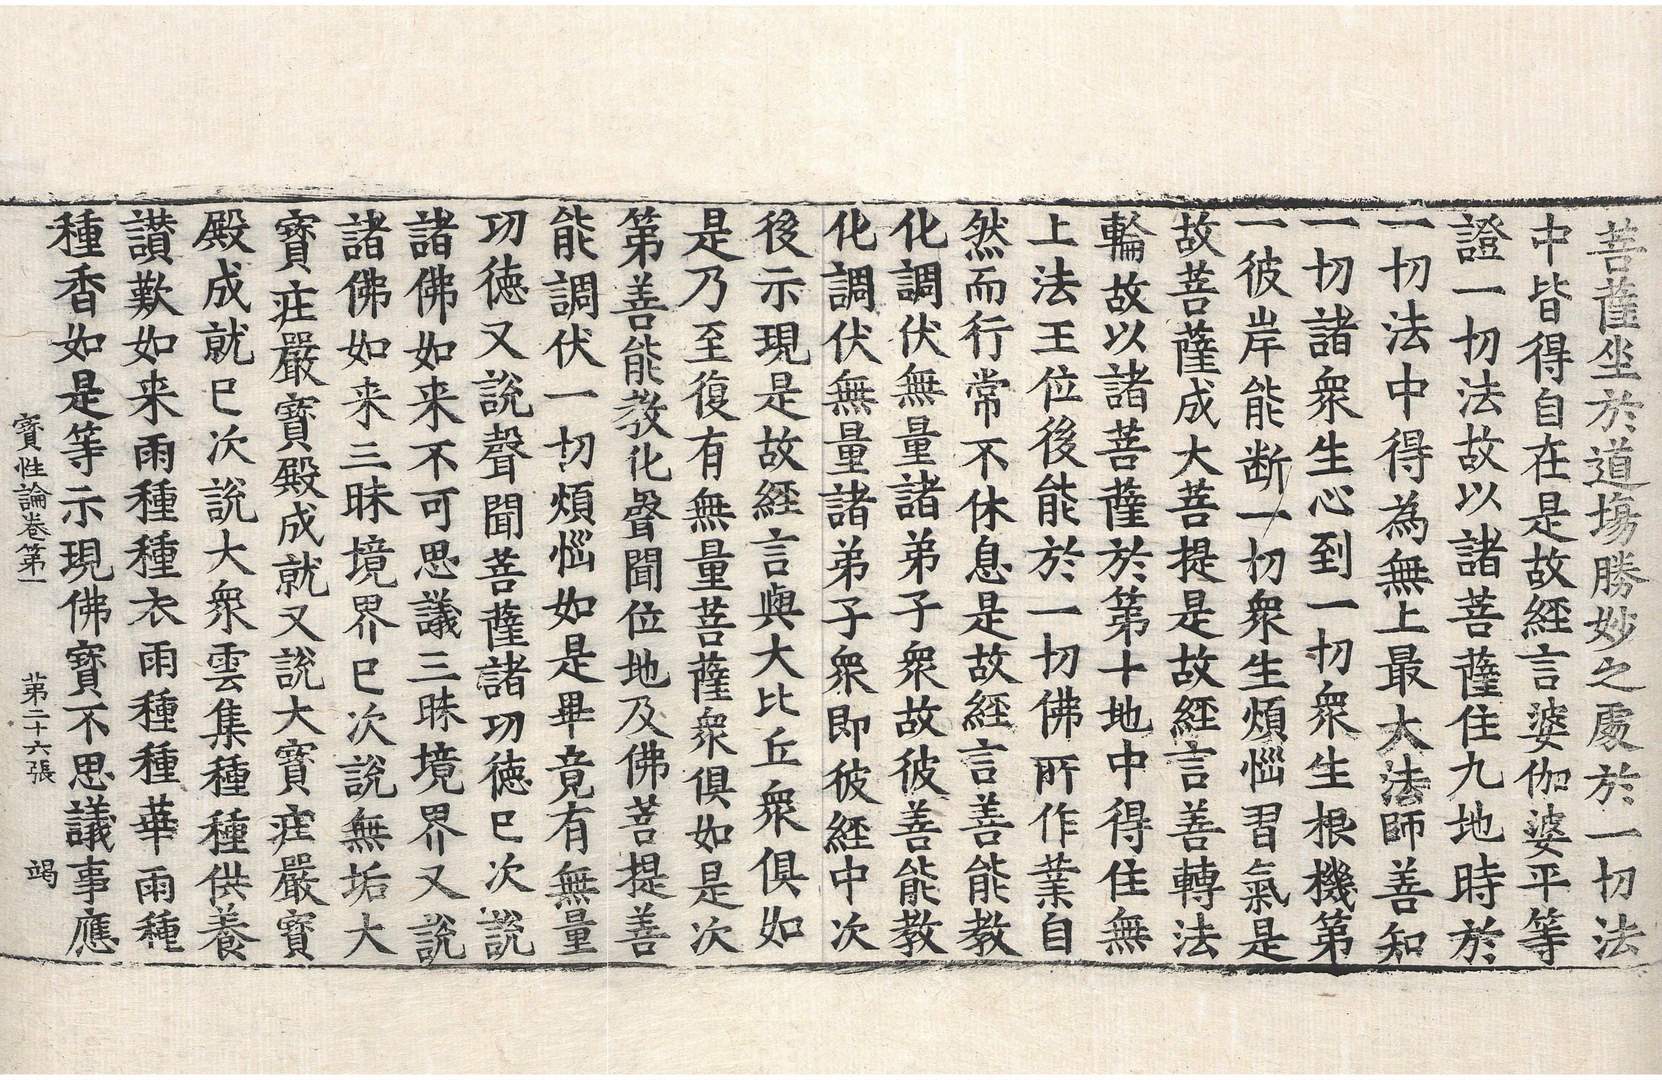 菩薩坐於道場勝妙之處於一切法
中皆得自在是故經言婆伽婆平等
證一切法故以諸菩薩住九地時於
一切法中得為無上最大法師善知
一切諸衆生心到一切衆生根機第
一彼岸能断一切衆生煩惱習氣是
故菩薩成大菩提是故經言善轉法
輪故以諸菩薩於第十地中得住無
上法王位後能於一切佛所作業自
然而行常不休息是故經言善能教
化調伏無量諸弟子衆故彼善能教
化調伏無量諸弟子衆即彼經中次
後示現是故經言與大比丘衆俱如
是乃至復有無量菩薩衆俱如是次
第善能教化聲聞位地及佛菩提善
能調伏一切煩惱如是畢竟有無量
功德又說聲聞菩薩諸功德已次說
諸佛如来不可思議三昧境界又說
諸佛如来三昧境界已次說無垢大
寶莊嚴寶殿成就又說大寶莊嚴寶
殿成就已次說大衆雲集種種供養
讃歎如来雨種種衣雨種種華雨種
種香如是等示現佛寶不思議事應
寶性論卷第一 第二十六張 竭